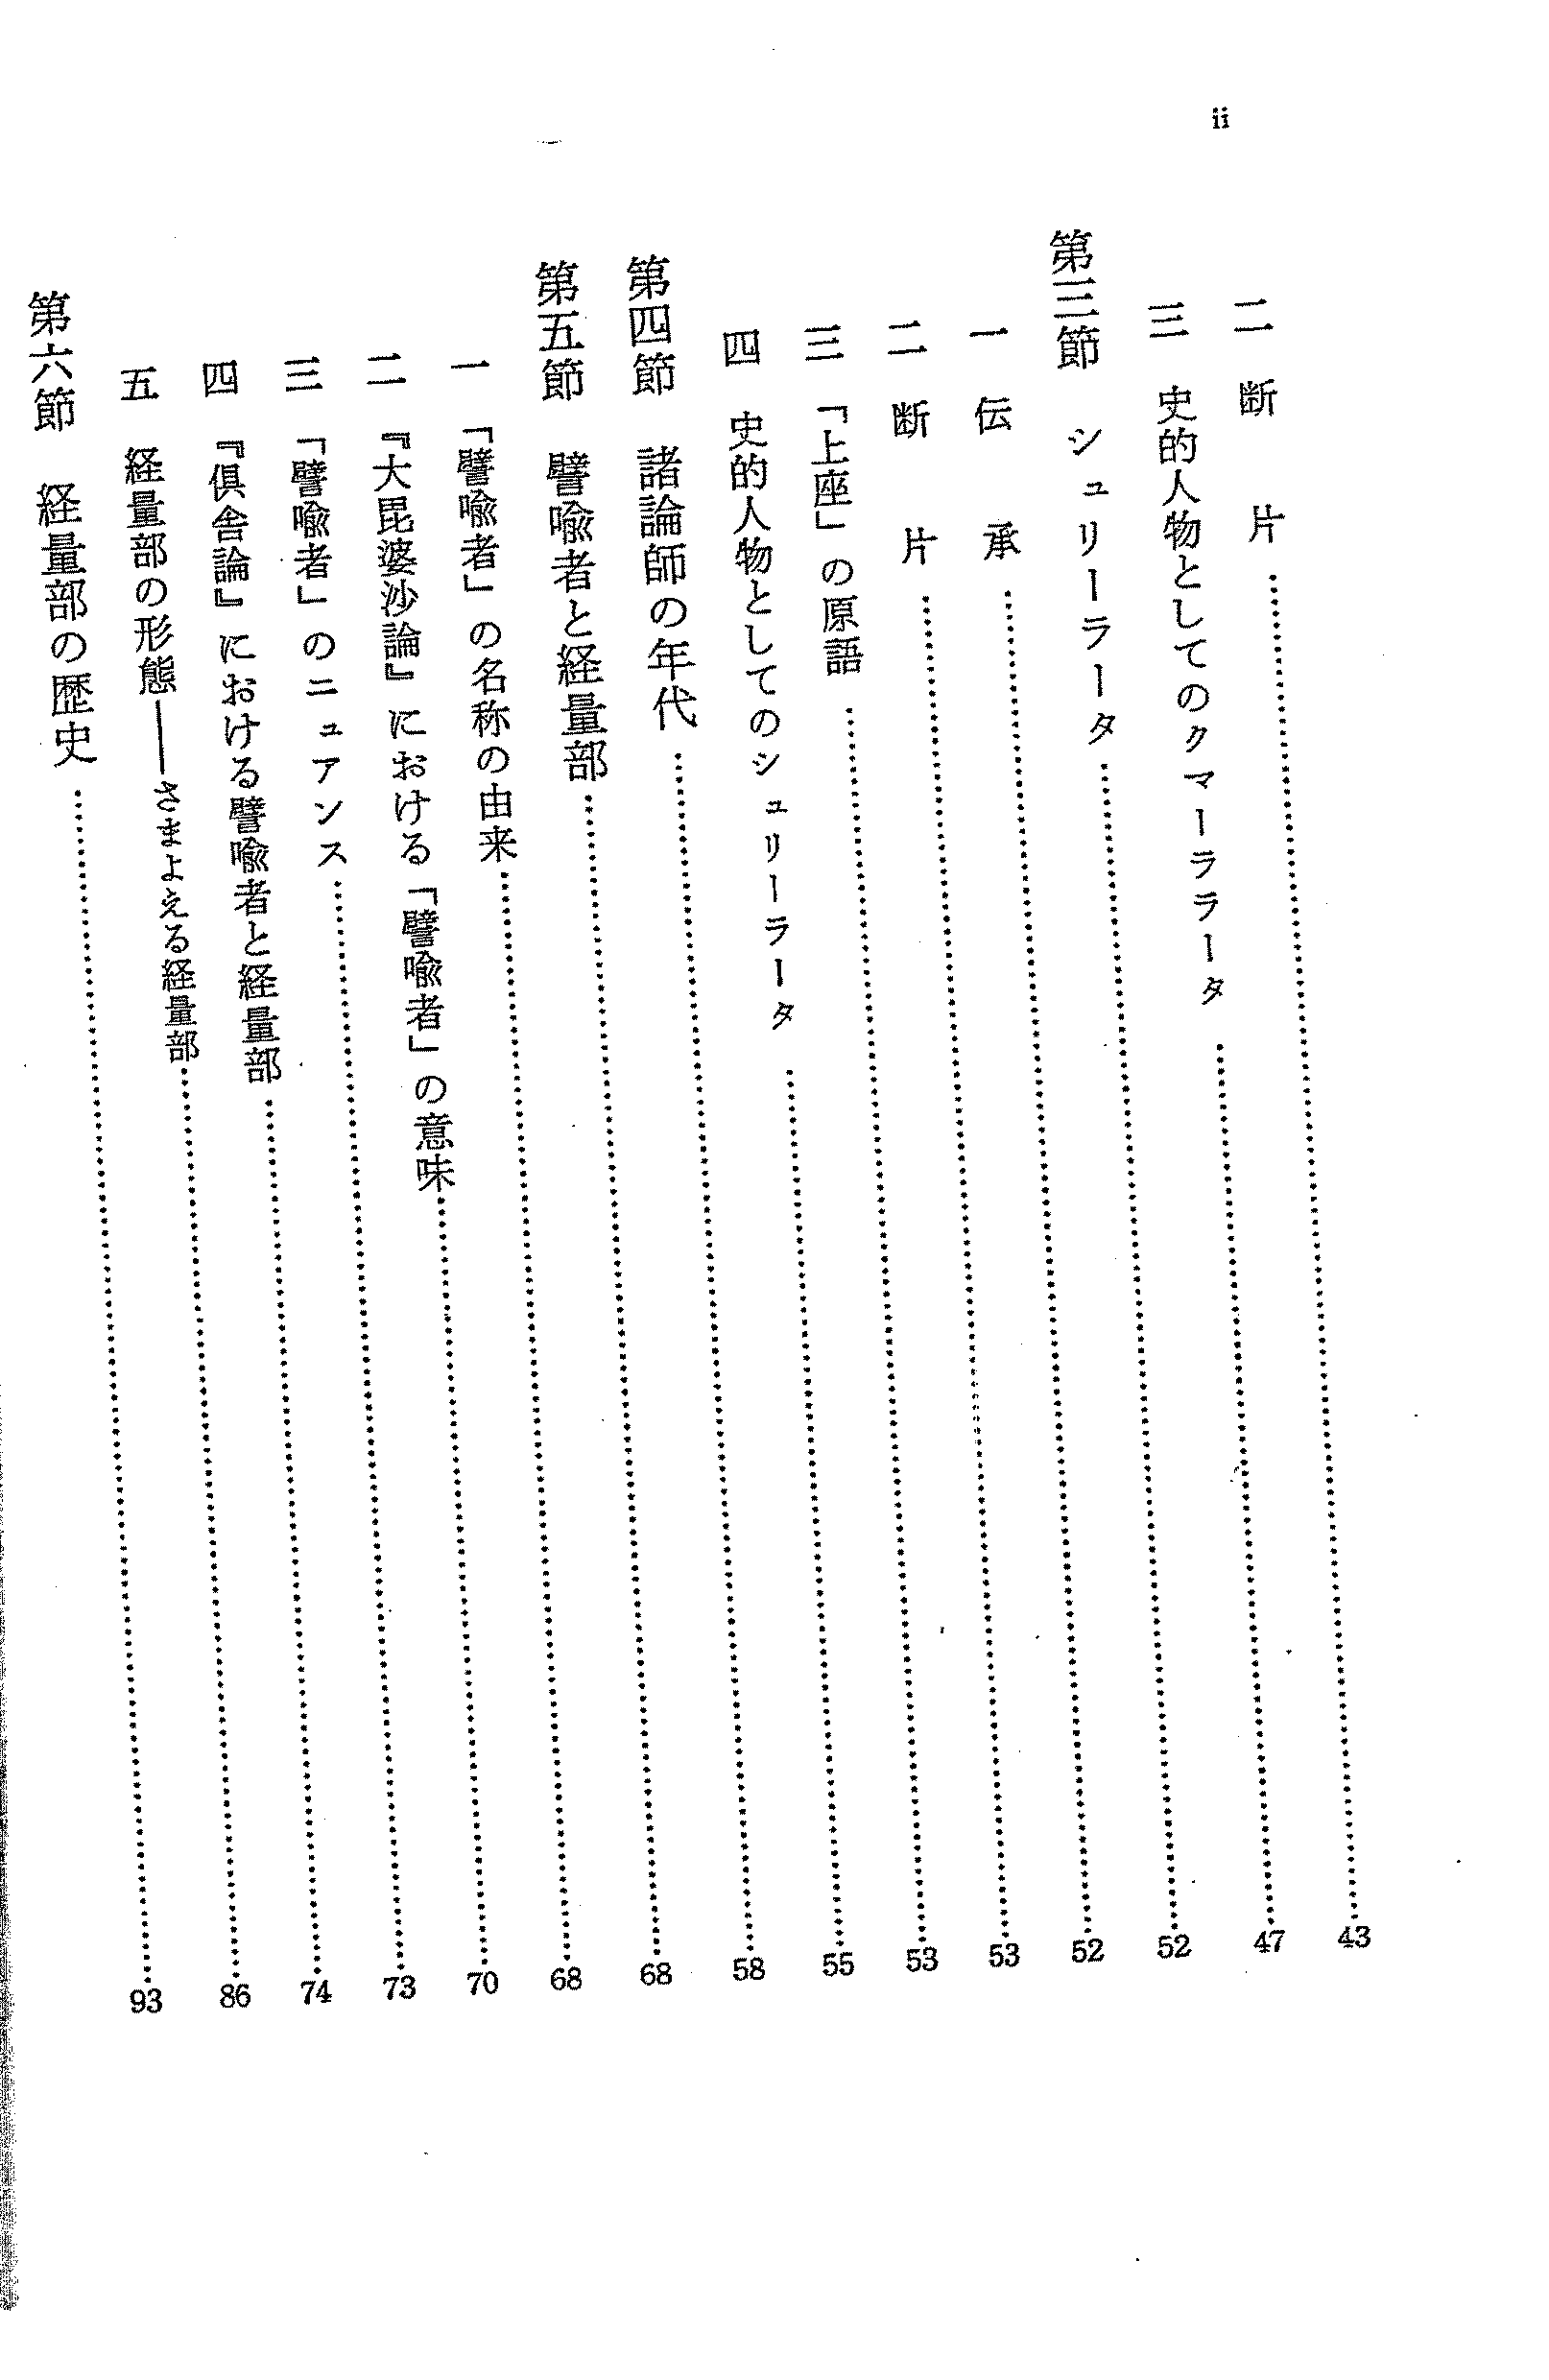 ii
二 断片……43
三 史的人物としてのクマーララータ……47
第三節 シュリーラータ……52
一 伝承……52
二 断片……53
三 「上座」の原語……53
四 史的人物としてのシュリーラータ……55
第四節 諸論師の年代……58
第五節 譬喩者と経量部……68
一 「譬喩者」の名称の由来……68
二 『大毘婆沙論』における「譬喩者」の意味……70
三 「譬喩者」のニュアンス……73
四 『倶舎論』における譬喩者と経量部……74
五 経量部の形態――さまよえる経量部……86
第六節 経量部の歴史……93